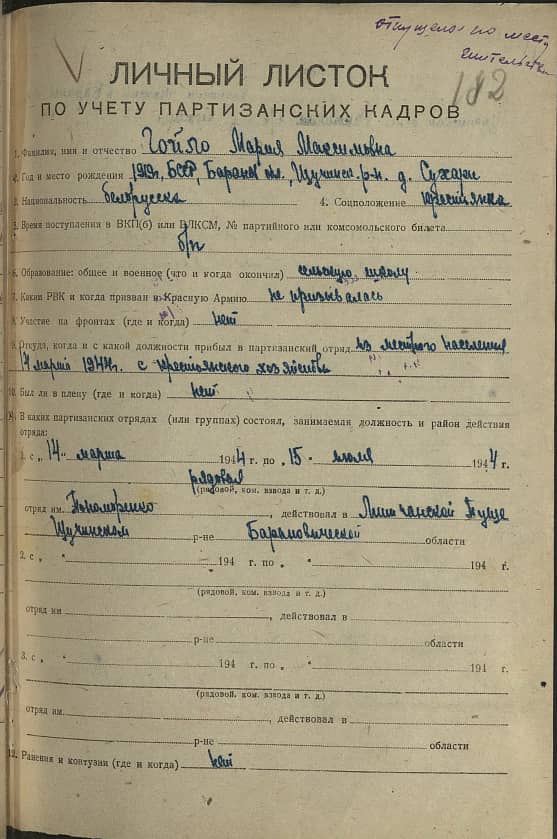 отпущена по месту
жительства
182
ЛИЧНЫЙ ЛИСТОК
ПО УЧЕТУ ПАРТИЗАНСКИХ КАДРОВ
1. Фамилия, имя и отчество Гойло Мария Максимовна
2. Год и место рождения 1919г, БССР, Баранов. обл., Щучинск. р-н. д. Сухари
3. Национальность белорусска 4. Соцположение крестьянка
5. Время поступления в ВКП(б) или ВЛКСМ, № партийного или комсомольского билета
б/п
6. Образование: общее и военное (что и когда окончил) сельскую школу
7. Каким РВК и когда призван в Красную Армию не призывалась
8. Участие на фронтах (где и когда) нет
9. Откуда, когда и с какой должности прибыл в партизанский отряд из местного населения
14 марта 1944г. с крестьянского хозяйства
10. Был ли в плену (где и когда) нет
11. В каких партизанских отрядах (или группах) состоял, занимаемая должность и район действия
отряда:
1. с „14" марта 1944 г. по „15" июля 1944 г.
рядовая
(рядовой, ком. взвода и т. д.)
отряд им. Пономаренко, действовал в Липичанской Пуще
Щучинском р-не Барановической области
2. с „ " 194 г. по „ " 194 г.
(рядовой, ком. взвода и т. д.)
отряд им , действовал в
р-не области
3. с „ " 194 г. по „ " 194 г.
(рядовой, ком. взвода и т. д.)
отряд им. , действовал в
р-не области
12. Ранения и контузии (где и когда) нет